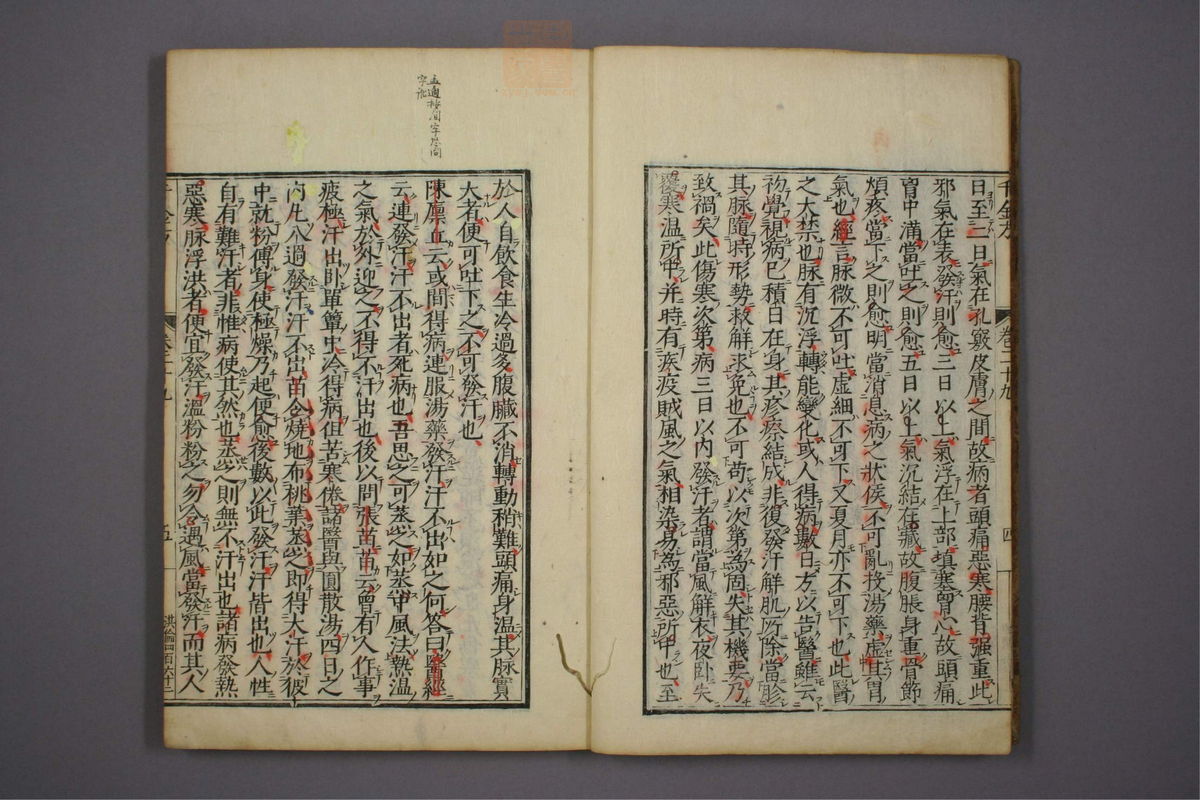 日至二日氣在孔竅皮膚之間故病者頭痛惡寒腰背强重此
邪氣在表發汗則愈三日以上氣浮在上部填塞胷心故頭痛
胷中滿當吐之則愈五日以上氣沉結在臟故腹脹身重骨節
煩疼當下之則愈明當消息病之狀候不可亂投湯藥虛其胃
氣也經言脉微不可吐虛細不可下又夏月亦不可下也此醫
之大禁也脉有沉浮轉能變化或人得病數日方以告醫雖云
初覺視病已積日在身其疹瘵結成非復發汗解肌所除當診
其脉隨時形勢救解求免也不可苟以次第為固失其機要乃
致禍矣此傷寒次第病三日以內發汗者謂當風解衣夜卧失
覆寒温所中并時有疾疫賊風之氣相染易為邪惡所中也至
千金方 卷二十九 四
於人自飲食生冷過多腹臟不消轉動稍難頭痛身温其脉實
大者便可吐下之不可發汗也
陳廩丘云或問得病連服湯藥發汗汗不出如之何答曰醫經
云連發汗汗不出者死病也吾思之可蒸之如蒸中風法熱温
之氣於外迎之不得不汗出也後以問張苗苗云曾有人作事
疲極汗出卧單簟中冷得病但苦寒倦諸醫與圓散湯四日之
內凡八過發汗汗不出苗令燒地布桃葉蒸之即得大汗於彼
中就粉傅身使極燥乃起便愈後數以此發汗汗皆出也人性
自有難汗者非惟病使其然也蒸之則無不汗出也諸病發熱
惡寒脉浮洪者便宜發汗溫粉粉之勿令過風當發汗而其人
千金方 卷二十九 五